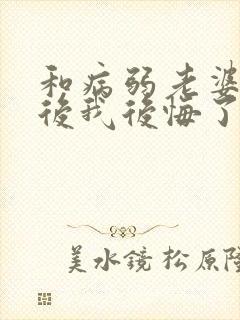 和病弱老婆
後我後悔了
美水鏡 松原隆